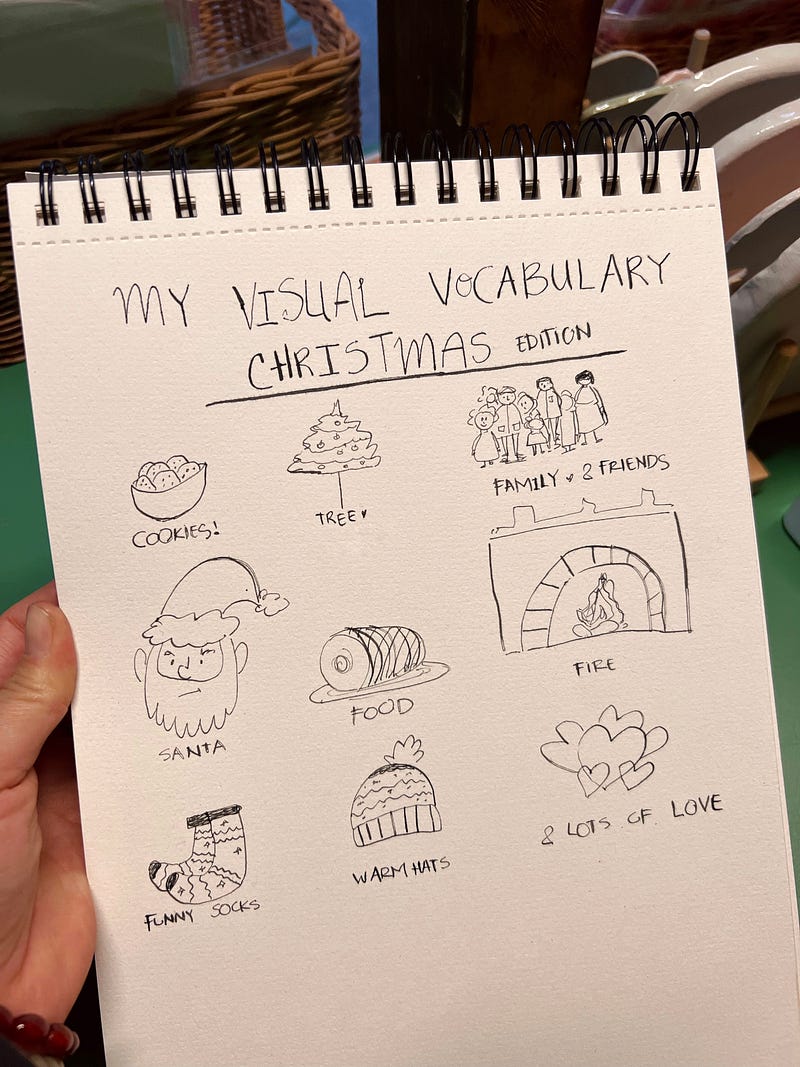 MY VISUAL VOCABULARY
CHRISTMAS EDITION
COOKIES!
TREE♥
FAMILY ♥ & FRIENDS
SANTA
FOOD
FIRE
FUNNY SOCKS
WARM HATS
& LOTS OF LOVE